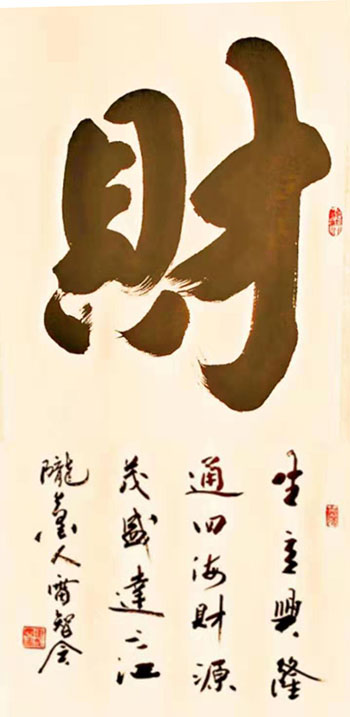 財
生意興隆
通四海財源
茂盛達三江
隴人雷智会